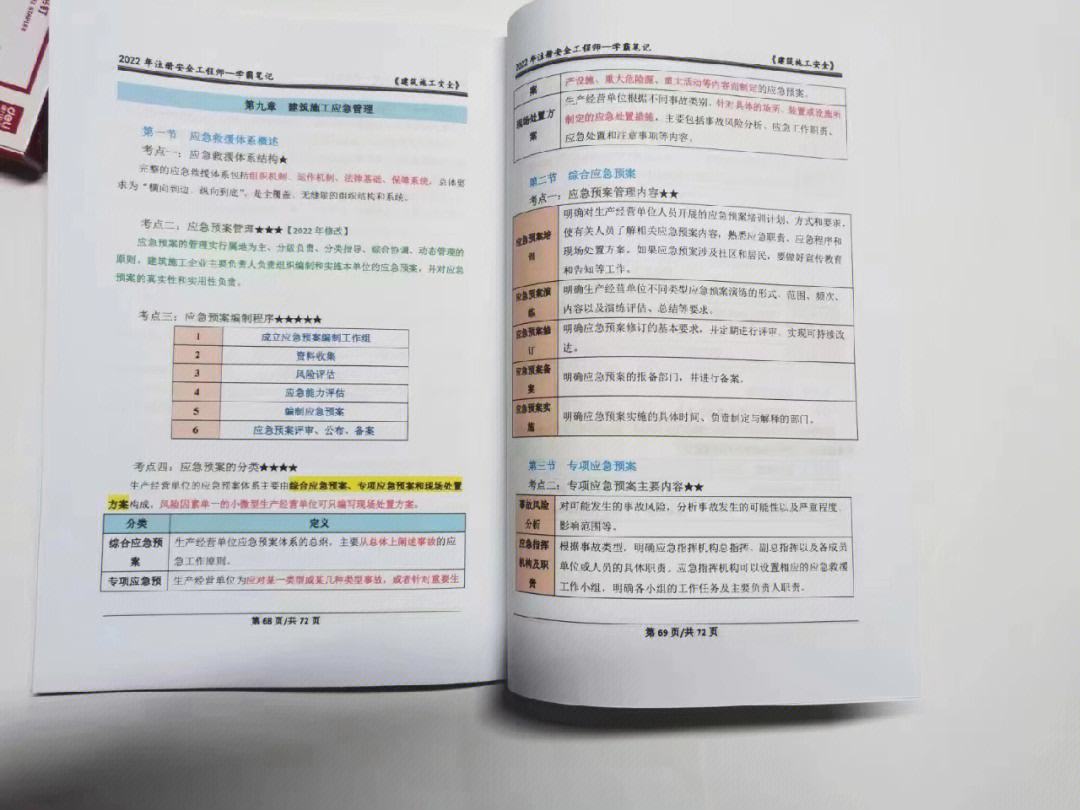 2022 年注册安全工程师—学霸笔记
《建筑施工安全》
第九章 建筑施工应急管理
第一节 应急救援体系概述
考点一：应急救援体系结构★
完整的应急救援体系包括组织机制、运作机制、法律基础、保障系统，总体要
求为“横向到边、纵向到底”，是全覆盖、无缝隙的组织结构和系统。
考点二：应急预案管理★★★【2022 年修改】
应急预案的管理实行属地为主、分级负责、分类指导、综合协调、动态管理的
原则，建筑施工企业主要负责人负责组织编制和实施本单位的应急预案，并对应急
预案的真实性和实用性负责。
考点三：应急预案编制程序★★★★★
1 成立应急预案编制工作组
2 资料收集
3 风险评估
4 应急能力评估
5 编制应急预案
6 应急预案评审、公布、备案
考点四：应急预案的分类★★★★
生产经营单位的应急预案体系主要由综合应急预案、专项应急预案和现场处置
方案构成。风险因素单一的小微型生产经营单位可只编写现场处置方案。
分类 定义
综合应急预 生产经营单位应急预案体系的总纲，主要从总体上阐述事故的应
案 急工作原则。
专项应急预 生产经营单位为应对某一类型或某几种类型事故，或者针对重要生
第 68 页/共 72 页
2022 年注册安全工程师—学霸笔记
《建筑施工安全》
案 产设施、重大危险源、重大活动等内容而制定的应急预案。
现场处置方 生产经营单位根据不同事故类别，针对具体的场所、装置或设施所
案 制定的应急处置措施，主要包括事故风险分析、应急工作职责、
应急处置和注意事项等内容。
第二节 综合应急预案
考点一：应急预案管理内容★★
应急预案培 明确对生产经营单位人员开展的应急预案培训计划、方式和要求，
训 使有关人员了解相关应急预案内容，熟悉应急职责、应急程序和
现场处置方案。如果应急预案涉及社区和居民，要做好宣传教育
和告知等工作。
应急预案演 明确生产经营单位不同类型应急预案演练的形式、范围、频次、
练 内容以及演练评估、总结等要求。
应急预案修 明确应急预案修订的基本要求，并定期进行评审，实现可持续改
订 进。
应急预案备 明确应急预案的报备部门，并进行备案。
案
应急预案实 明确应急预案实施的具体时间、负责制定与解释的部门。
施
第三节 专项应急预案
考点二：专项应急预案主要内容★★
事故风险 对可能发生的事故风险，分析事故发生的可能性以及严重程度、
分析 影响范围等。
应急指挥 根据事故类型，明确应急指挥机构总指挥、副总指挥以及各成员
机构及职 单位或人员的具体职责。应急指挥机构可以设置相应的应急救援
责 工作小组，明确各小组的工作任务及主要负责人职责。
第 69 页/共 72 页
deli